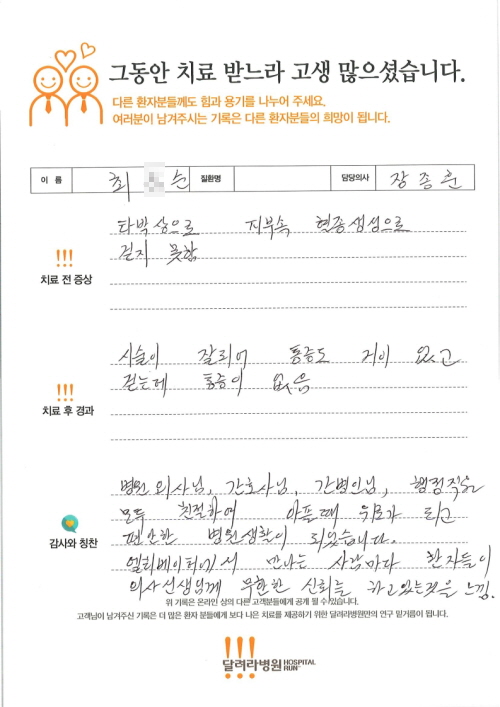 그동안 치료 받느라 고생 많으셨습니다.
다른 환자분들께도 힘과 용기를 나누어 주세요.
여러분이 남겨주시는 기록은 다른 환자분들의 희망이 됩니다.
이 름 최 순 질환명 담당의사 장종훈
타박상으로 지부속 혈종생성으로
걷지 못함
!!!
치료 전 증상
시술이 잘되어 통증도 거이 없고
걷는데 통증이 없음
!!!
치료 후 경과
병원 의사님, 간호사님, 간병인님, 행정직원
모두 친절하여 아플때 위로가 되고
편안한 병원생활이 되었습니다.
엘리베이터에서 만나는 사람마다 환자들이
의사선생님께 무한한 신뢰를 하고있는것을 느낌.
감사와 칭찬
위 기록은 온라인 상의 다른 고객분들에게 공개 될 수 있습니다.
고객님이 남겨주신 기록은 더 많은 환자 분들에게 보다 나은 치료를 제공하기 위한 달려라병원만의 연구 밑거름이 됩니다.
!!!
달려라병원 HOSPITAL RUN